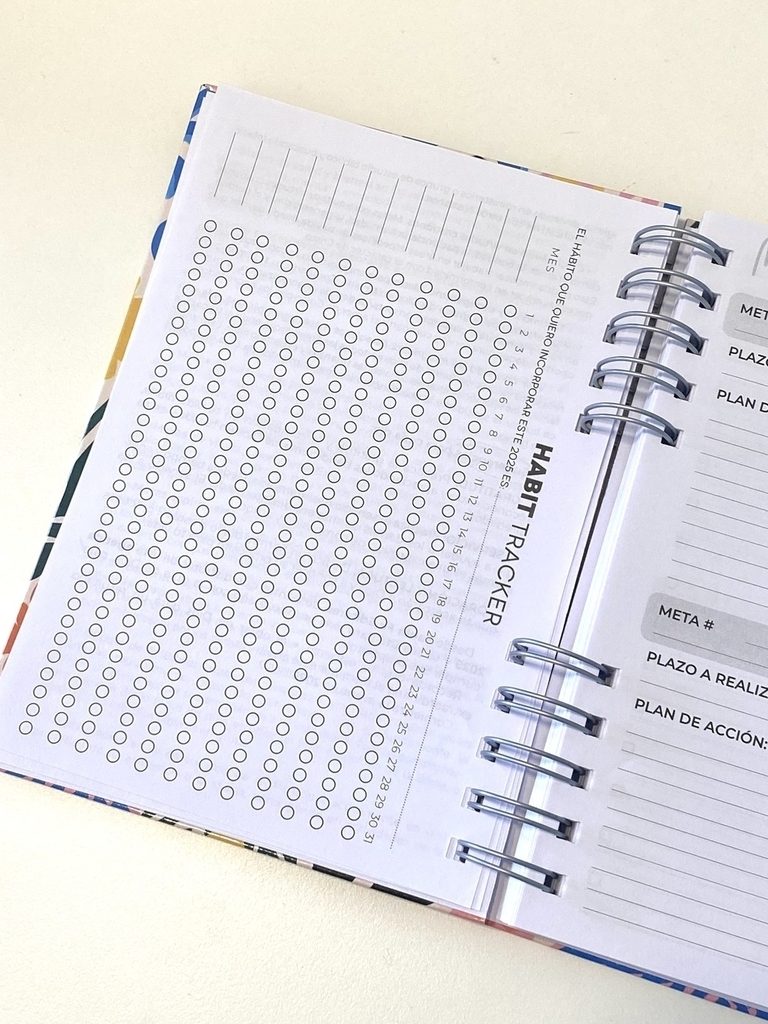 HABIT TRACKER
EL HÁBITO QUE QUIERO INCORPORAR ESTE 2025 ES:
MES 1 2 3 4 5 6 7 8 9 10 11 12 13 14 15 16 17 18 19 20 21 22 23 24 25 26 27 28 29 30 31
MET
PLAZO
PLAN D
META #
PLAZO A REALIZ
PLAN DE ACCIÓN: